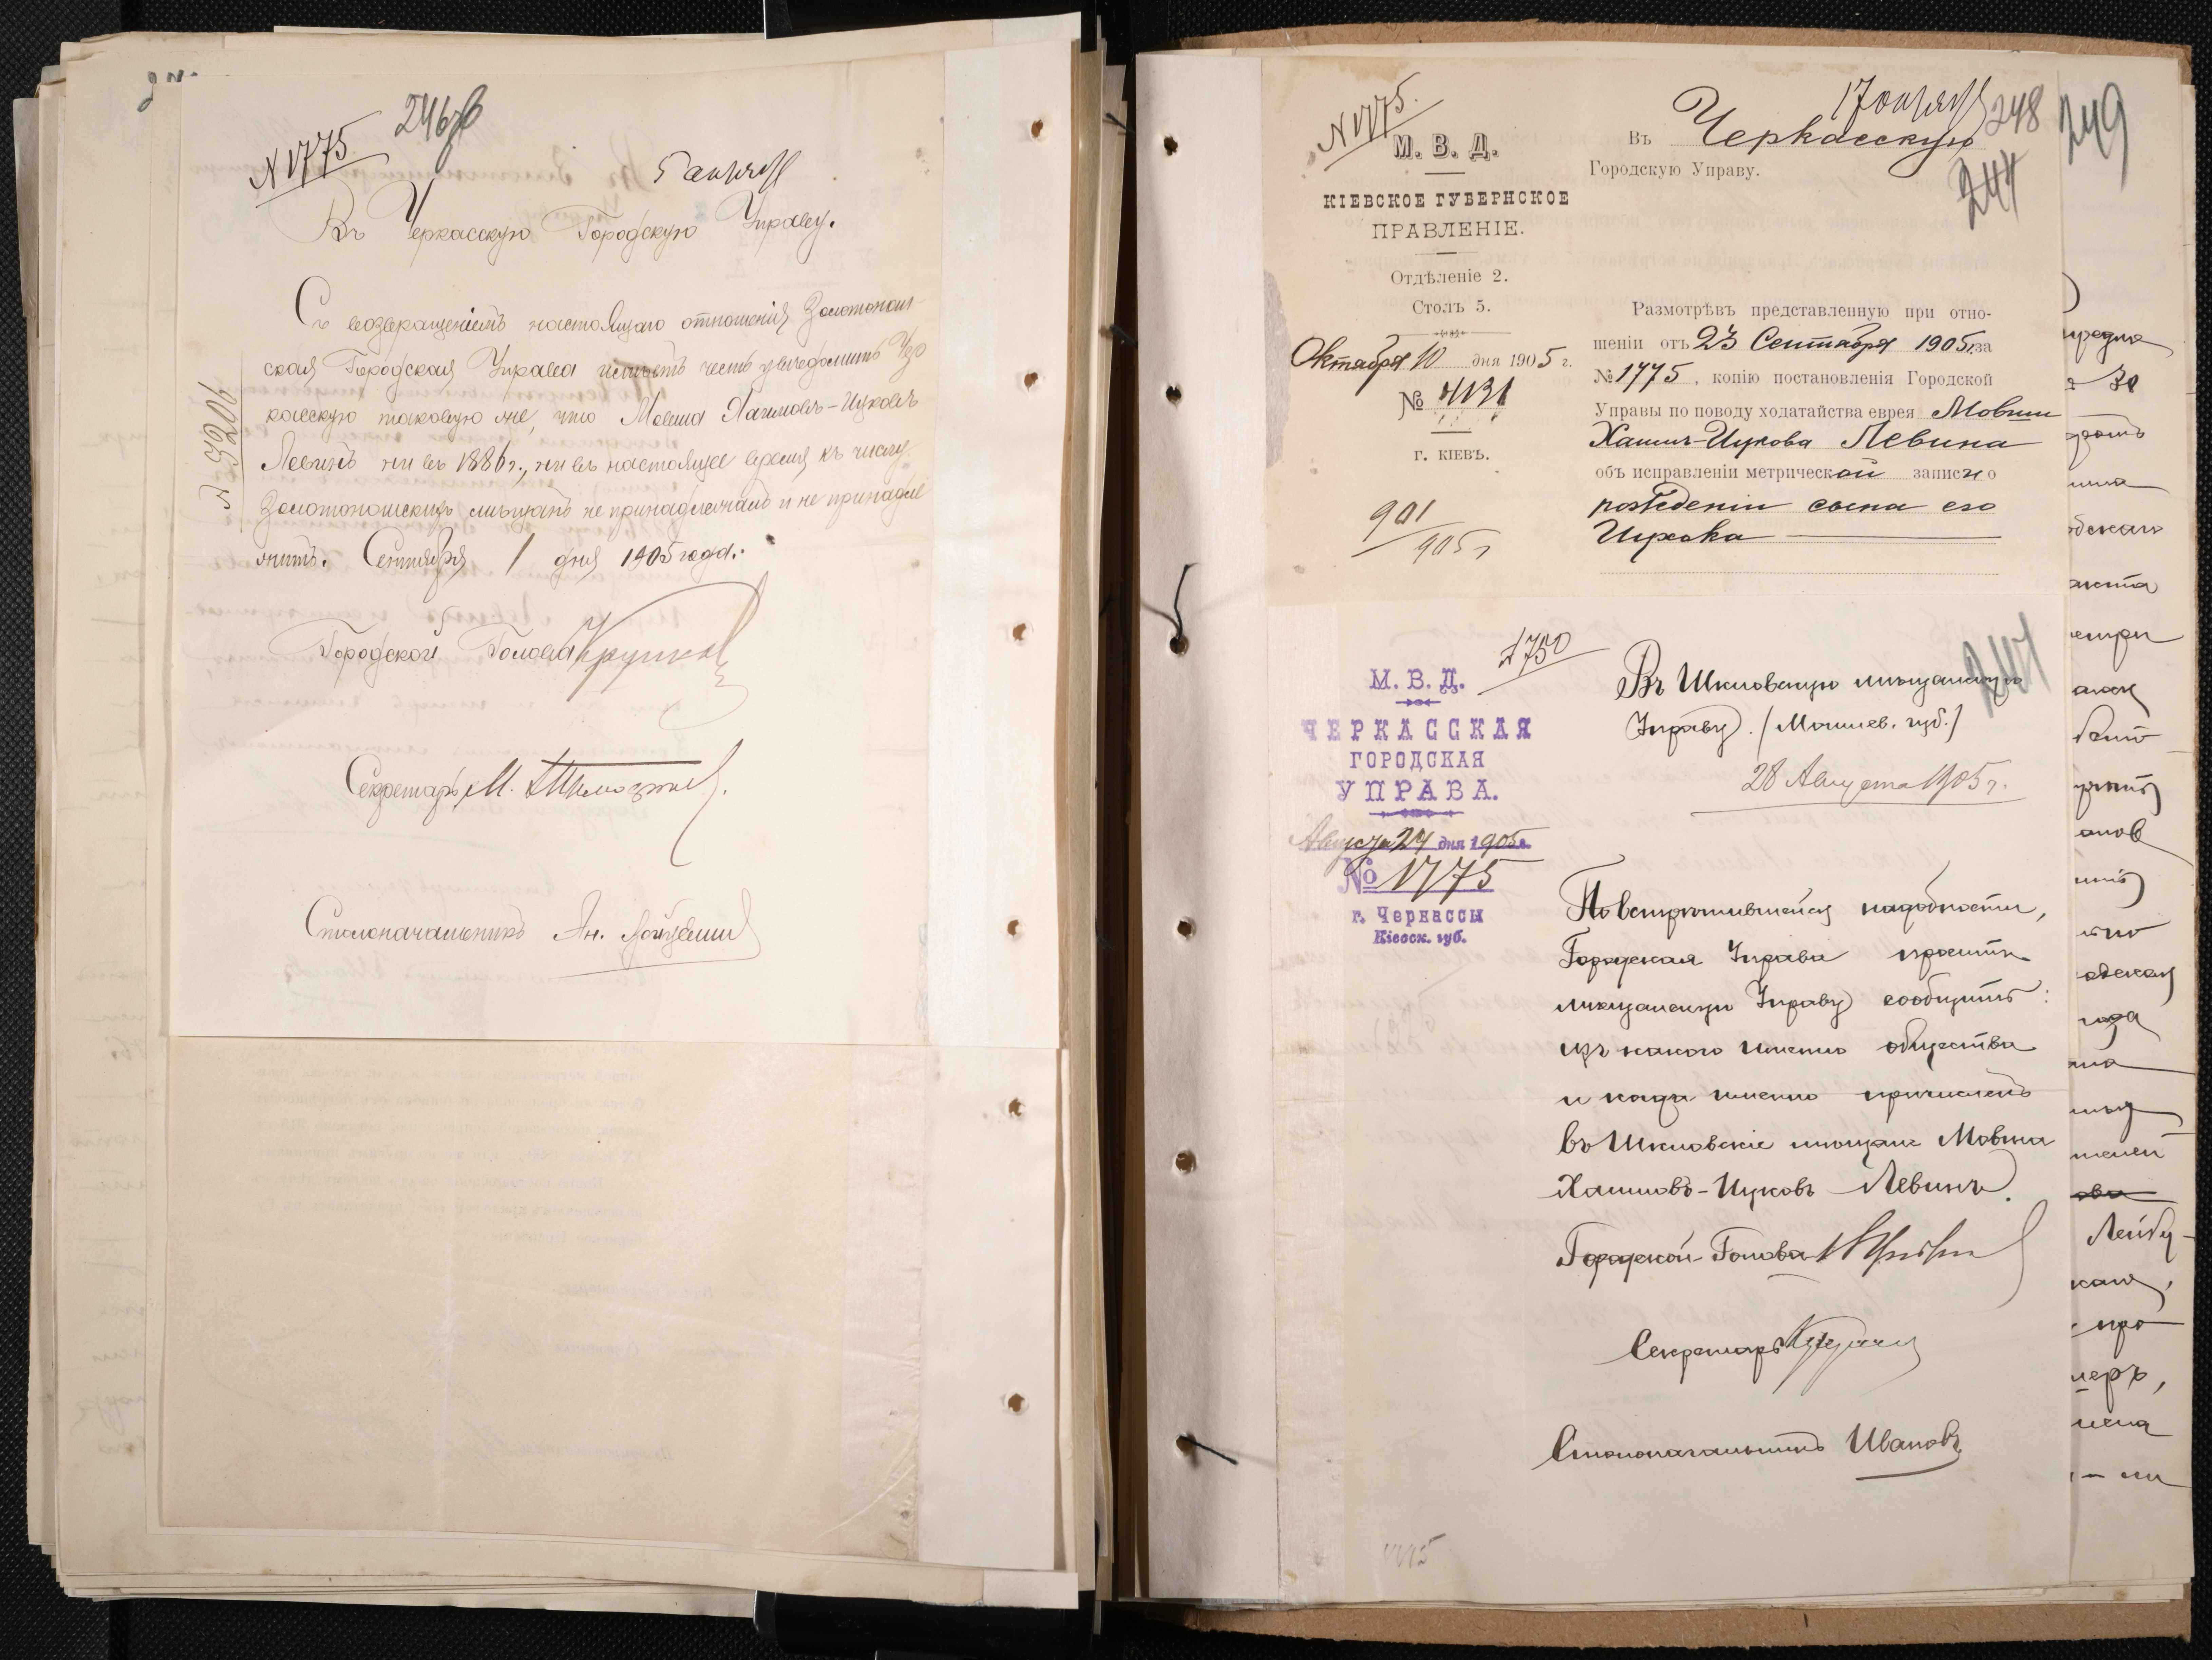 246об
N 1775
Въ Черкасскую Городскую Управу.
Съ возвращеніемъ настоящаго отношенія Золотонош
ская Городская Управа имѣетъ честь увѣдомить Чер
касскую таковую же, что Мовша Хаимовъ-Ицковъ
Левинъ ни въ 1886 г., ни въ настоящее время къ числу
Золотоношскихъ мѣщанъ не принадлежалъ и не принадле
житъ. Сентября 1 дня 1905 года.
N 3206
Городской Голова
Секретарь М.
Столоначальникъ Ан.
N 1775.
М. В. Д.
КІЕВСКОЕ ГУБЕРНСКОЕ
ПРАВЛЕНІЕ.
Отдѣленіе 2.
Столъ 5.
Октября 10 дня 1905 г.
№ 4131
г. КІЕВЪ.
901
905 г
248
249
Въ Черкасскую
Городскую Управу.
Размотрѣвъ представленную при отно-
шеніи отъ 23 Сентября 1905 г. за
№ 1775, копію постановленія Городской
Управы по поводу ходатайства еврея Мовши
Хаимъ-Ицкова Левина
объ исправленіи метрической записи о
рожденіи сына его
Ицхока
1750
М. В. Д.
ЧЕРКАССКАЯ
ГОРОДСКАЯ
УПРАВА.
Августа 24 дня 1905 г.
№ 1775
г. Черкассы
Кіевск. губ.
Въ Шкловскую мѣщанскую
Управу. (Могилев. губ.)
28 Августа 1905 г.
По встрѣтившейся надобности,
Городская Управа проситъ
мѣщанскую Управу сообщить:
изъ какого именно общества
и когда именно причисленъ
въ Шкловскіе мѣщане Мовша
Хаимовъ-Ицковъ Левинъ.
Городской Голова
Секретарь
Столоначальникъ Ивановъ